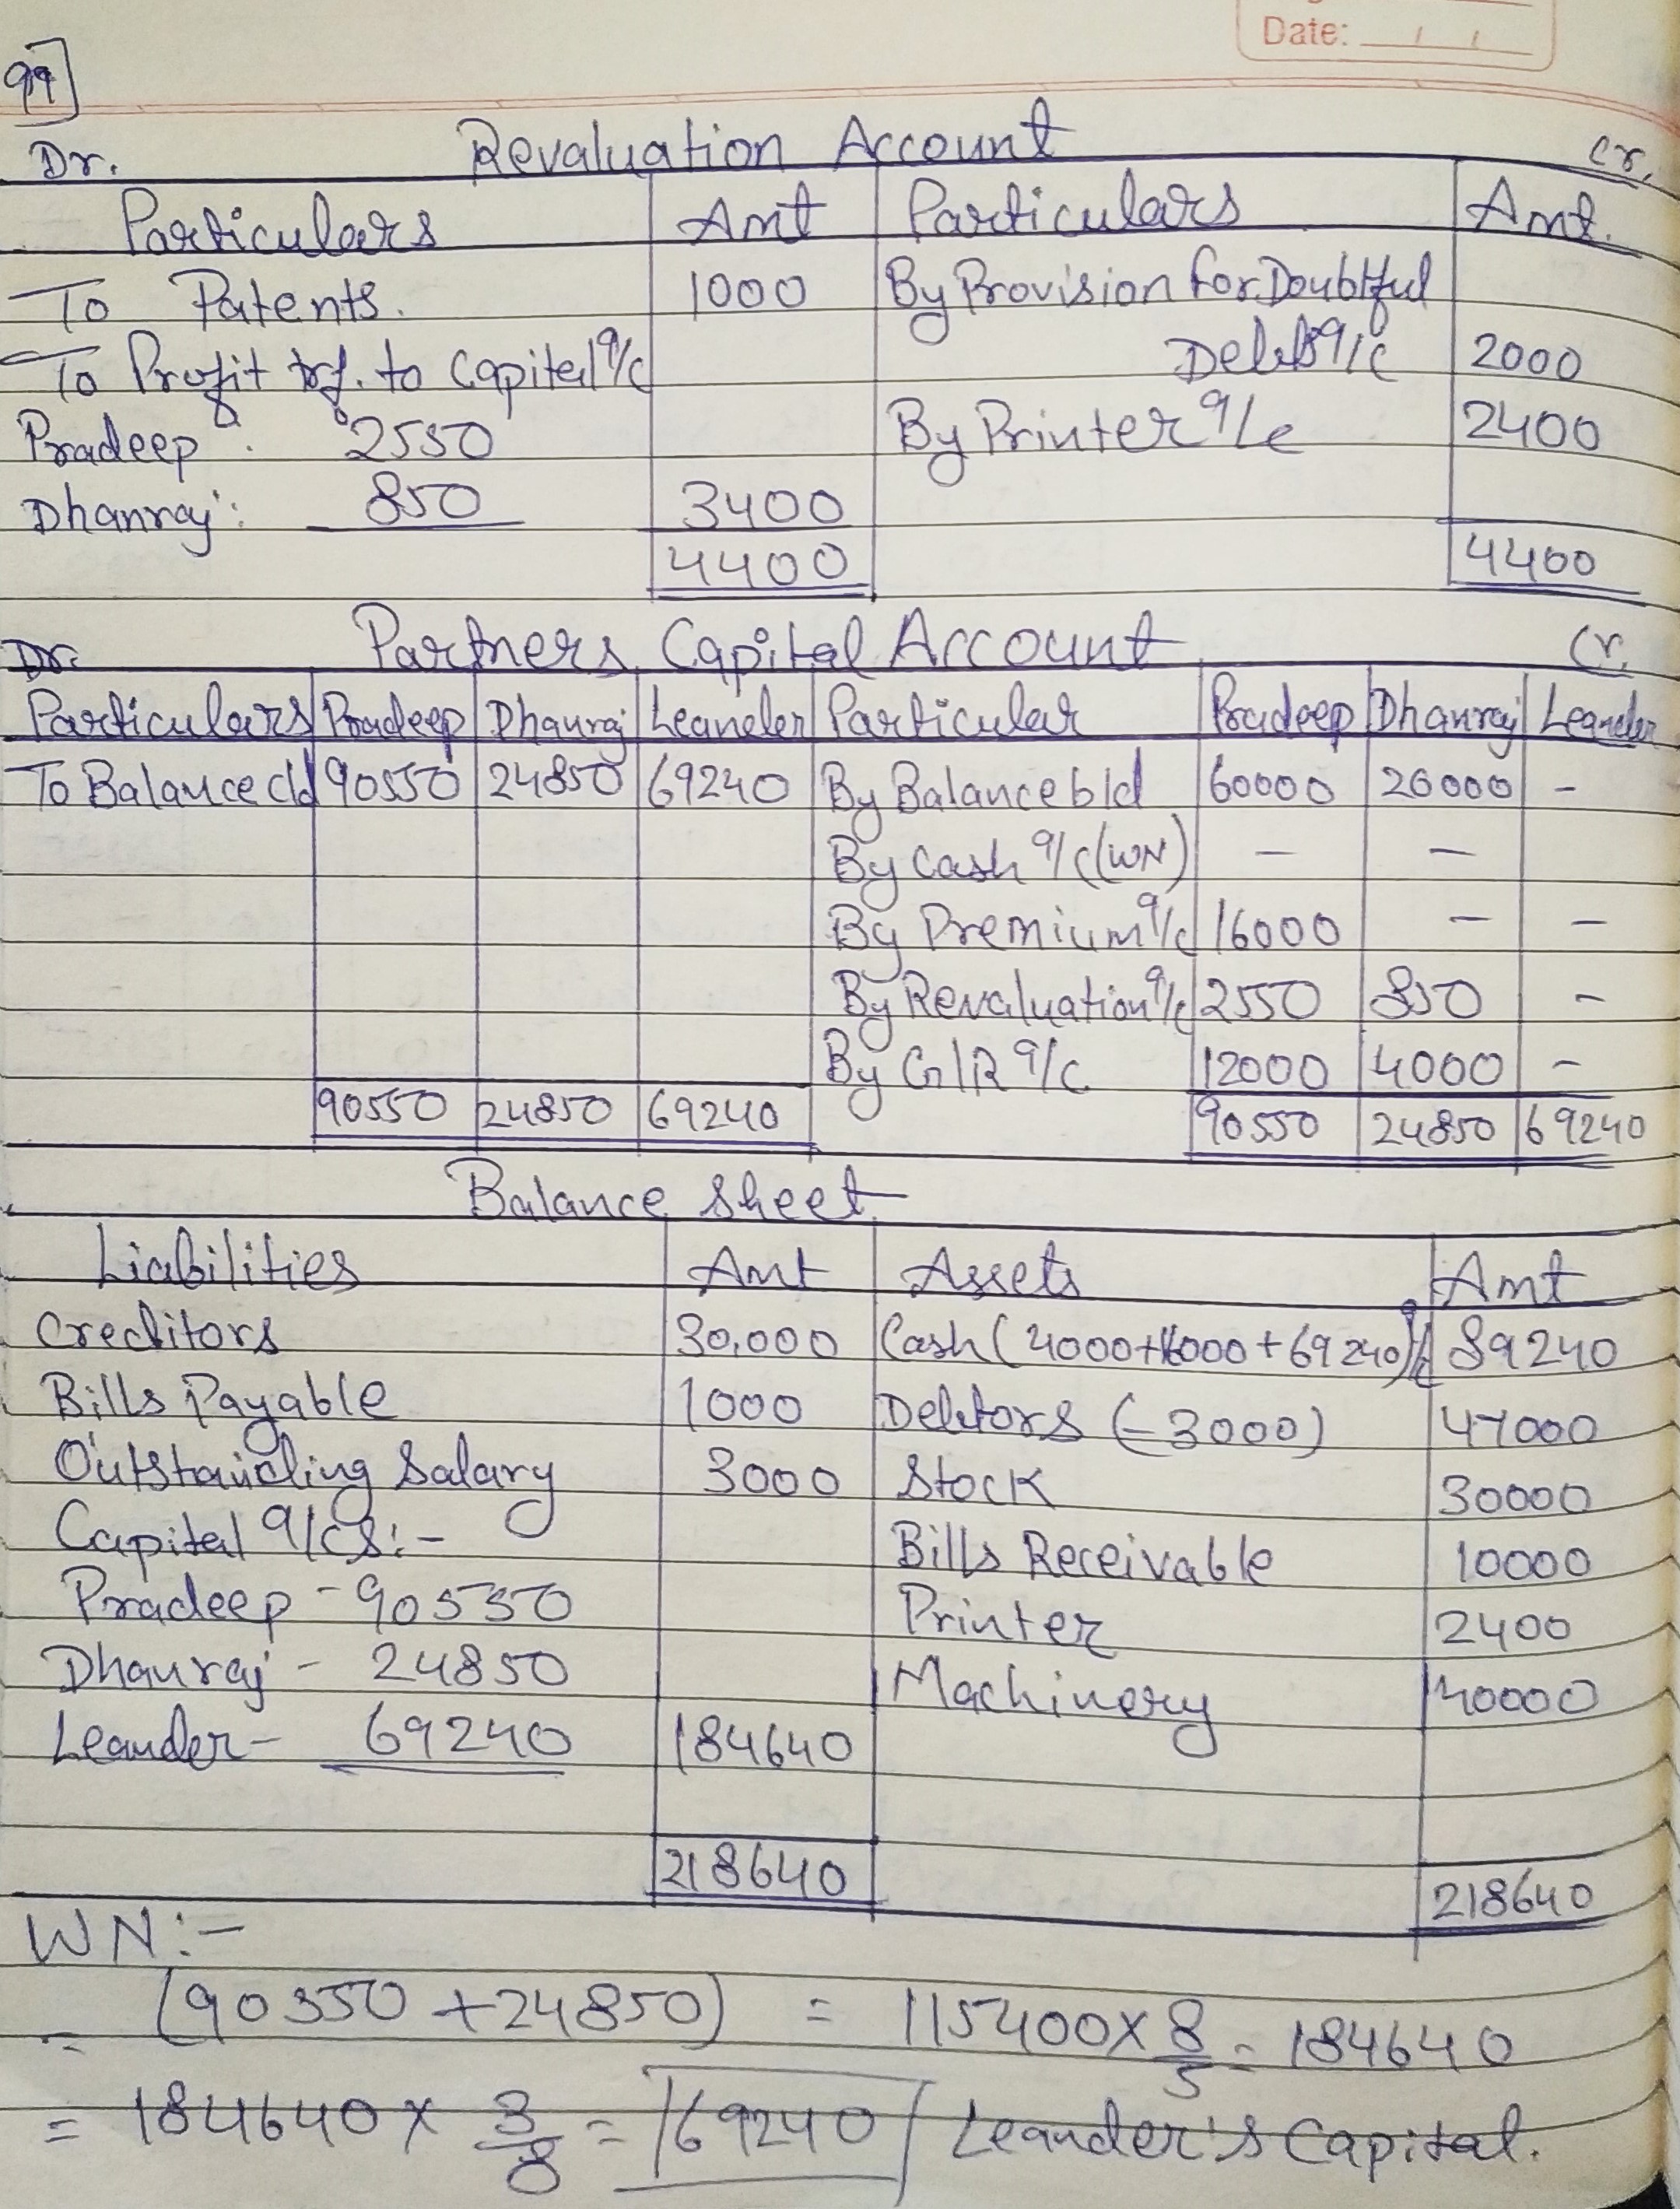 Date: / /
99]
Dr. Revaluation Account Cr.
Particulars Amt Particulars Amt.
To Patents. 1000 By Provision for Doubtful
Debts a/c 2000
To Profit trf. to Capital a/c
Pradeep: 2550 By Printer a/c 2400
Dhanraj: 850 3400
4400 4400
Dr. Partners Capital Account Cr.
Particulars Pradeep Dhanraj Leander Particular Pradeep Dhanraj Leander
To Balance c/d 90550 24850 69240 By Balance b/d 60000 20000 -
By Cash a/c (WN) - -
By Premium a/c 16000 - -
By Revaluation a/c 2550 850 -
By G/R a/c 12000 4000 -
90550 24850 69240 90550 24850 69240
Balance Sheet
Liabilities Amt Assets Amt
Creditors 30,000 Cash (4000+16000+69240) 89240
Bills Payable 1000 Debtors (-3000) 47000
Outstanding Salary 3000 Stock 30000
Capital a/cs:- Bills Receivable 10000
Pradeep - 90550 Printer 2400
Dhanraj - 24850 Machinery 40000
Leander - 69240 184640
218640 218640
WN:-
= (90550 + 24850) = 115400 × 8/5 = 184640
= 184640 × 3/8 = 69240 Leander's Capital.